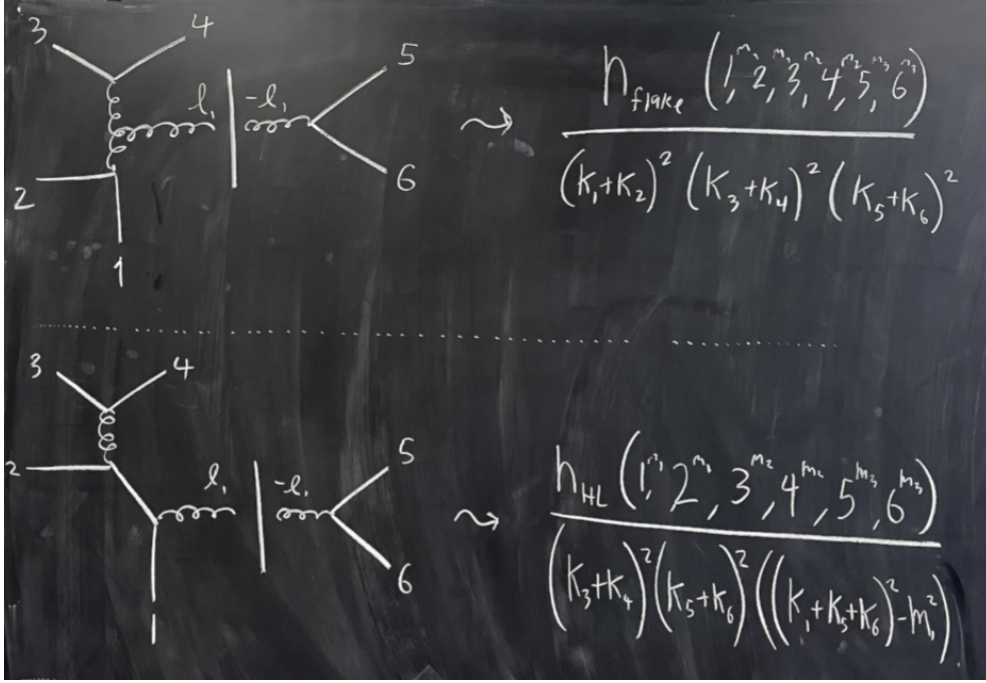 3 4
ℓ₁ -ℓ₁ 5
2 6
1
n_flake (1^m₁, 2^m₁, 3^m₂, 4^m₂, 5^m₃, 6^m₃)
(K₁+K₂)² (K₃+K₄)² (K₅+K₆)²
3 4
2 ℓ₁ -ℓ₁ 5
6
1
n_HL (1^m₁, 2^m₁, 3^m₂, 4^m₂, 5^m₃, 6^m₃)
(K₃+K₄)² (K₅+K₆)² ((K₁+K₅+K₆)²-m₁²)